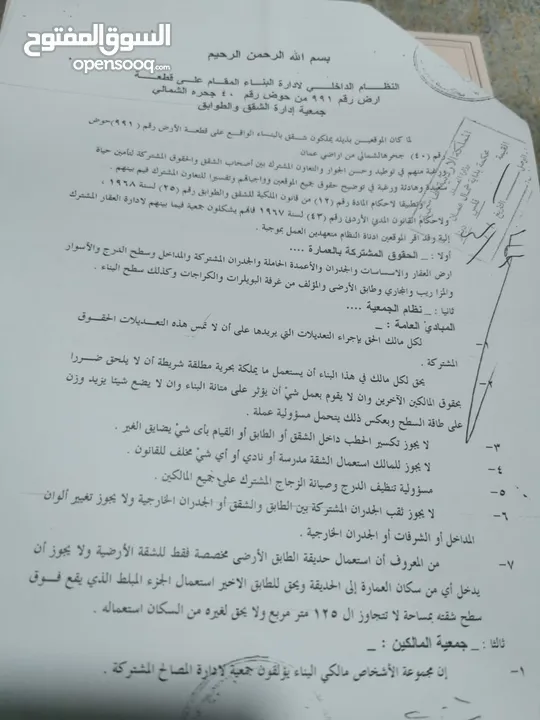 السوق المفتوح
opensooq.com
بسم الله الرحمن الرحيم
النظام الداخلي لادارة البناء المقام على قطعة
ارض رقم ٩٩١ من حوض رقم ٤٠ جحره الشمالي
جمعية إدارة الشقق والطوابق
لما كان الموقعين بذيله يملكون شقق بالبناء الواقع على قطعة الأرض رقم (٩٩١) حوض
رقم (٤٠) جحرهالشمالي من اراضي عمان
رغبة منهم في توطيد وحسن الجوار والتعاون المشترك بين أصحاب الشقق والحقوق المشتركة لتأمين حياة
سعيدة وهادئة ورغبة في توضيح حقوق جميع الموقعين وواجباتهم وتفسيرا للتعاون المشترك فيم بينهم .
وتطبيقا لاحكام المادة رقم (١٢) من قانون الملكية للشقق والطوابق رقم (٢٥) لسنة ١٩٦٨
ولاحكام القانون المدي الأردني رقم (٤٣) لسنة ١٩٦٧ فانهم يشكلون جمعية فيما بينهم لادارة العقار المشترك
إلية وقد اقر الموقعين ادناة النظام متعهدين العمل بموجبة .
أولا : _ الحقوق المشتركة بالعمارة ....
ارض العقار والاساسات والجدران والأعمدة الحاملة والجدران المشتركة والمداخل وسطح الدرج والأسوار
والمزا ريب والمجاري وطابق الأرضى والمؤلف من غرفة البويلرات والكراجات وكذلك سطح البناء .
ثانيا : _ نظام الجمعية ....
المبادئ العامة : _
١- لكل مالك الحق بإجراء التعديلات التي يريدها على أن لا تمس هذه التعديلات الحقوق
المشتركة .
٢- يحق لكل مالك في هذا البناء أن يستعمل ما يملكة بحرية مطلقة شريطة أن لا يلحق ضررا
بحقوق المالكين الآخرين وان لا يقوم بعمل شئ أن يؤثر على متانة البناء وان لا يضع شيئا يزيد وزن
على طاقة السطح وبعكس ذلك يتحمل مسؤولية عملة .
٣- لا يجوز تكسير الحطب داخل الشقق أو الطابق أو القيام بأى شئ يضايق الغير .
٤- لا يجوز للمالك استعمال الشقة مدرسة أو نادي أو أي شئ مخلف للقانون .
٥- مسؤولية تنظيف الدرج وصيانة الزجاج المشترك على جميع المالكين .
٦- لا يجوز لقب الجدران المشتركة بين الطابق والشقق أو الجدران الخارجية ولا يجوز تغيير ألوان
المداخل أو الشرفات أو الجدران الخارجية .
٧- من المعروف أن استعمال حديقة الطابق الأرضى مخصصة فقط للشقة الأرضية ولا يجوز أن
يدخل أي من سكان العمارة إلى الحديقة ويحق للطابق الاخير استعمال الجزء المبلط الذي يقع فوق
سطح شقته بمساحة لا تتجاوز ال ١٢٥ متر مربع ولا يحق لغيره من السكان استعماله .
ثالثا : _ جمعية المالكين : _
١- إن مجموعة الأشخاص مالكي البناء يؤلقون جمعية لادارة المصالح المشتركة .